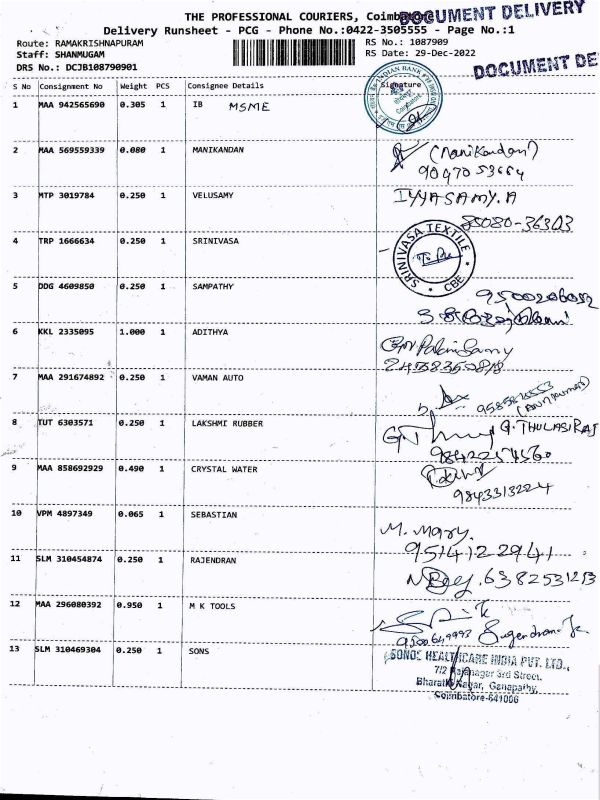 THE PROFESSIONAL COURIERS, Coimbatore
DOCUMENT DELIVERY
Delivery Runsheet - PCG - Phone No.:0422-3505555 - Page No.:1
Route: RAMAKRISHNAPURAM
RS No.: 1087909
Staff: SHANMUGAM
RS Date: 29-Dec-2022
DRS No.: DCJB108790901
DOCUMENT DE
S No Consignment No Weight PCS Consignee Details Signature
1 MAA 942565690 0.305 1 IB MSME
INDIAN BANK
2 MAA 569559339 0.080 1 MANIKANDAN
(Manikandan)
90470 53664
3 MTP 3019784 0.250 1 VELUSAMY IYYASAMY.A
85080-36303
4 TRP 1666634 0.250 1 SRINIVASA
SRINIVASA TEXTILE
CBE
5 DDG 4609850 0.250 1 SAMPATHY
9500206052
6 KKL 2335095 1.000 1 ADITHYA
Palanisamy
7 MAA 291674892 0.250 1 VAMAN AUTO
8 TUT 6303571 0.250 1 LAKSHMI RUBBER G. THULASIRAJ
9842254560
9 MAA 858692929 0.490 1 CRYSTAL WATER
9843313224
10 VPM 4897349 0.065 1 SEBASTIAN
M. Mary.
9514122941
11 SLM 310454874 0.250 1 RAJENDRAN
6382531213
12 MAA 296080392 0.950 1 M K TOOLS
9500649993
13 SLM 310469304 0.250 1 SONS
HEALTHCARE INDIA PVT. LTD.,
7/2 Rajanagar 3rd Street,
Bharathi Nagar, Ganapathy,
Coimbatore-641006